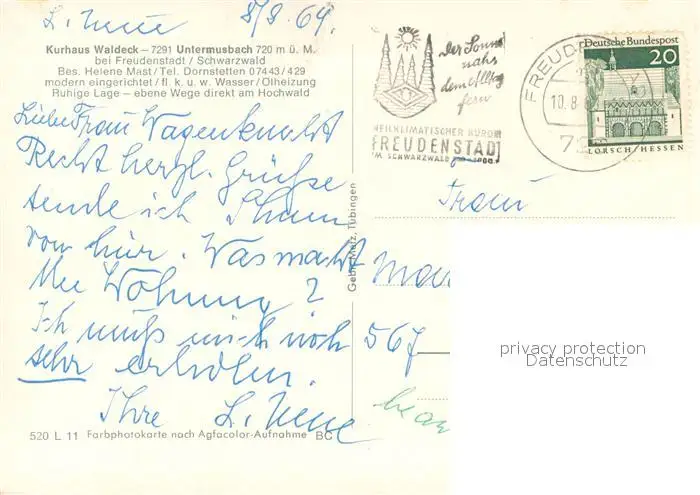 L. Neue 8/8. 69.
Kurhaus Waldeck – 7291 Untermusbach 720 m ü. M.
bei Freudenstadt / Schwarzwald
Bes. Helene Mast / Tel. Dornstetten 07443/429
modern eingerichtet / fl. k. u. w. Wasser / Ölheizung
Ruhige Lage – ebene Wege direkt am Hochwald
Liebe Frau Wagenknecht
Recht herzl. Grüße
sende ich Ihnen
von hier. Was macht
Ihre Wohnung?
Ich muß mich noch
sehr erholen.
Ihre L. Neue
520 L 11 Farbphotokarte nach Agfacolor-Aufnahme BC
Gebr. Metz, Tübingen
Der Sonne
nahe
dem Alltag
fern
HEILKLIMATISCHER KURORT
FREUDENSTADT
IM SCHWARZWALD
FREUD
10.8.
Deutsche Bundespost
20
LORSCH/HESSEN
Frau
567
privacy protection
Datenschutz